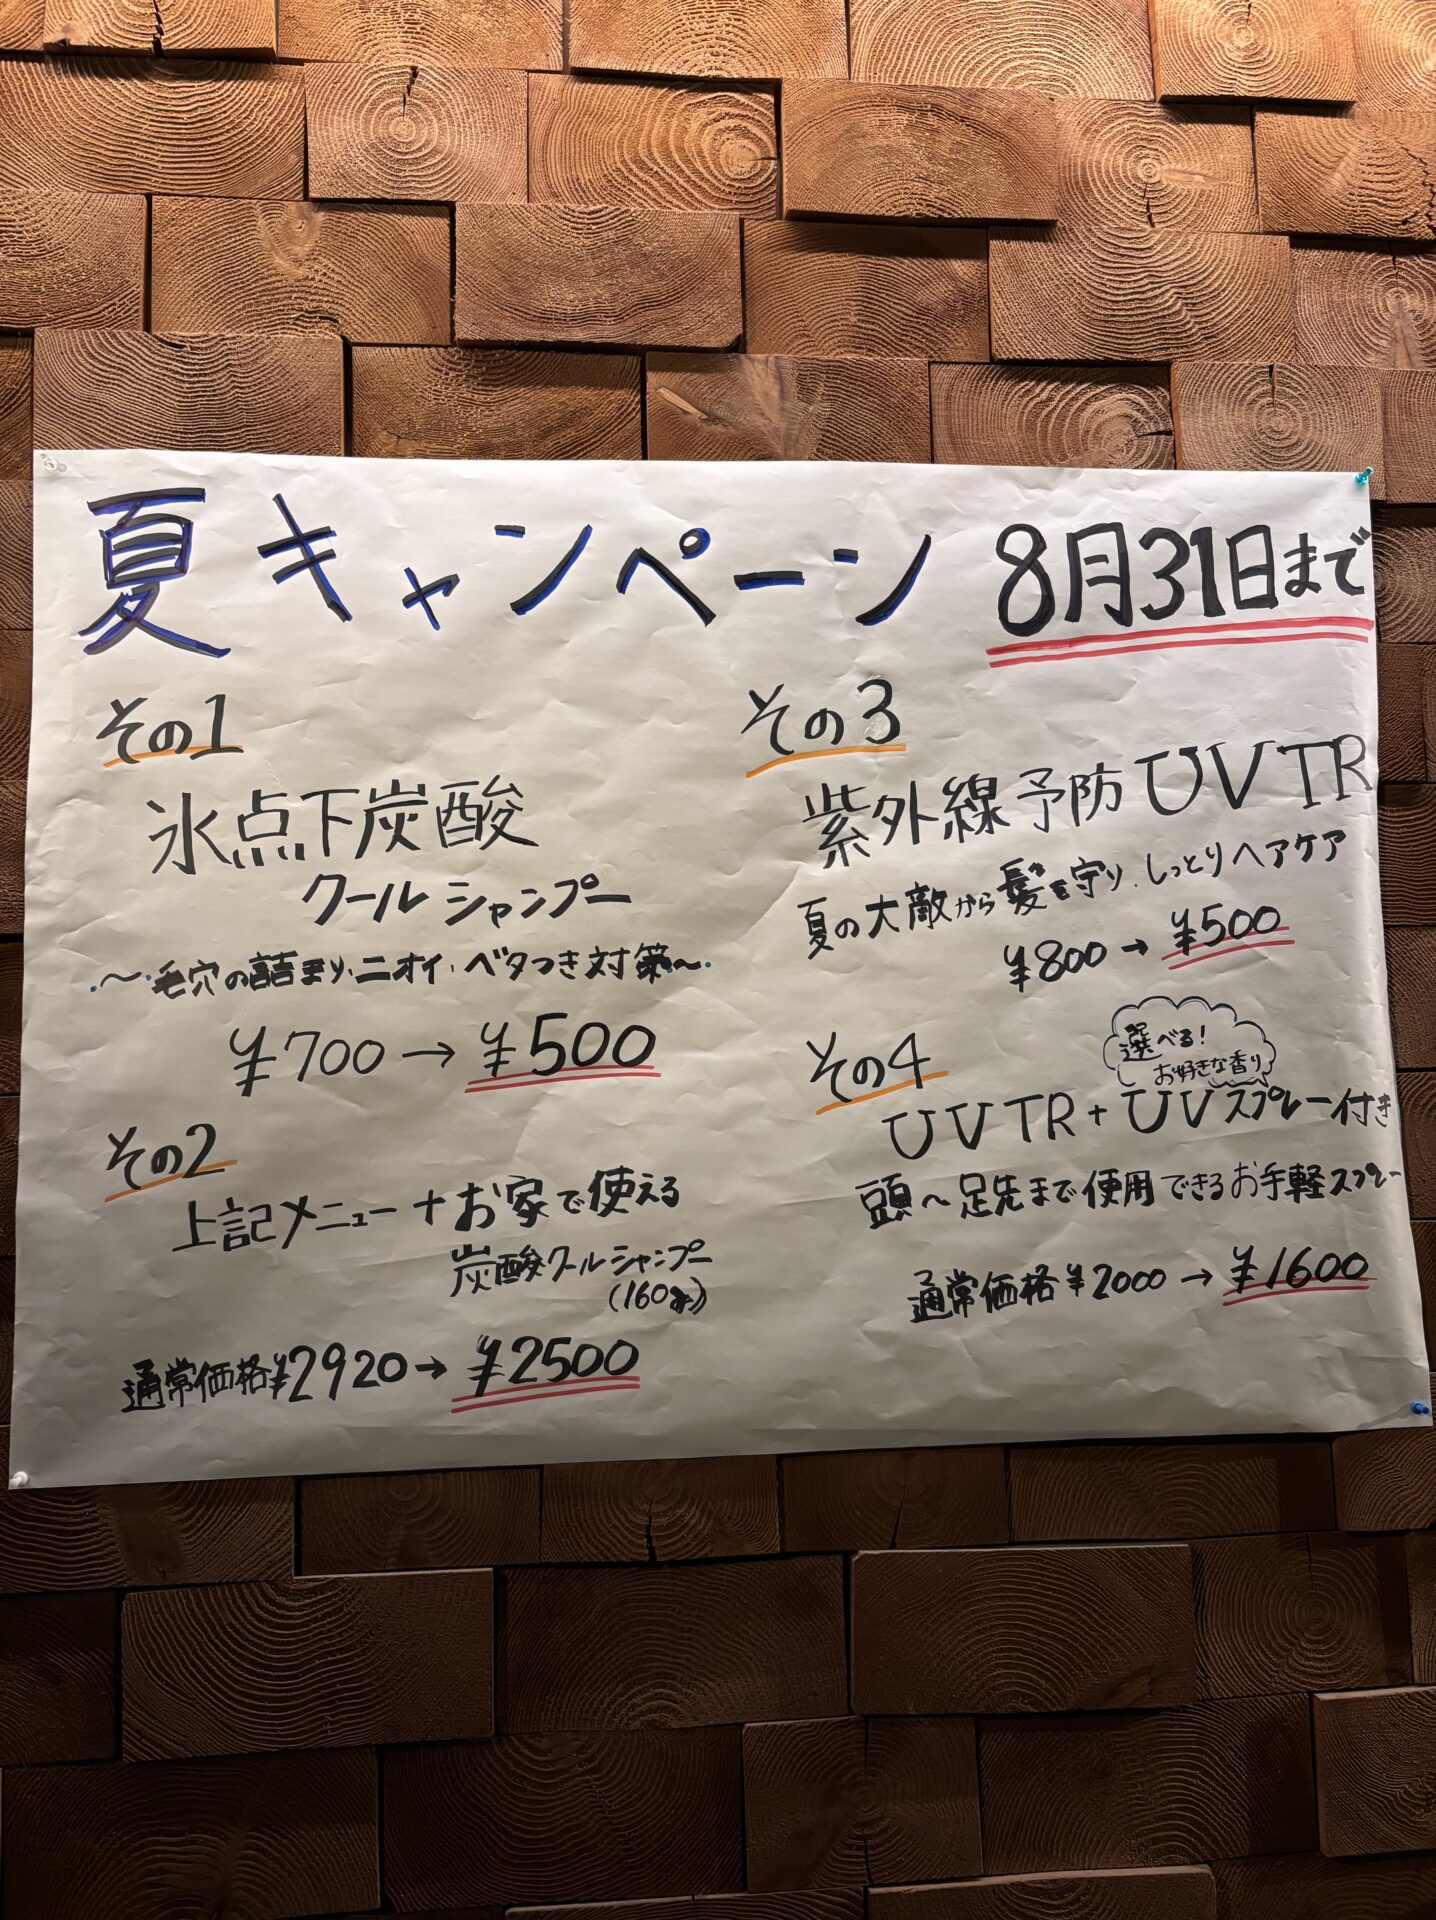 夏キャンペーン 8月31日まで
その1
氷点下炭酸
クールシャンプー
〜・毛穴の詰まり・ニオイ・ベタつき対策〜
¥700→¥500
その2
上記メニュー+お家で使える
炭酸クールシャンプー
(160g)
通常価格¥2920→¥2500
その3
紫外線予防UVTR
夏の大敵から髪を守り、しっとりヘアケア
¥800→¥500
その4
選べる!
お好きな香り
UVTR+UVスプレー付き
頭〜足先まで使用できるお手軽スプレー
通常価格¥2000→¥1600